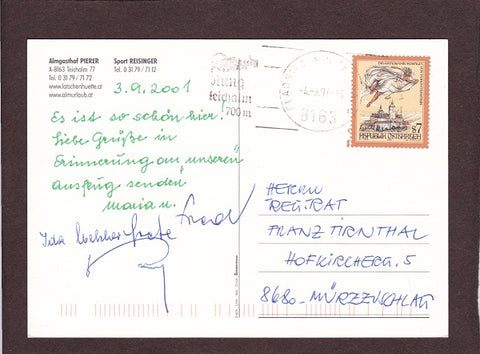 Almgasthof PIERER
A-8163 Teichalm 77
Tel. 0 31 79 / 71 72
www.latschenhuette.at
www.almurlaub.at
Sport REISINGER
Tel. 0 31 79 / 71 12
3.9.2001
Es ist so schön hier.
Liebe Grüße in
Erinnerung an unseren
Ausflug senden
Maria u.
Ida
teichalm
1700 m
8163
s7
REPUBLIK ÖSTERREICH
HERRN
REG. RAT
FRANZ TIRNTHAL
HOFKIRCHERG. 5
8680 - MÜRZZUSCHLAG